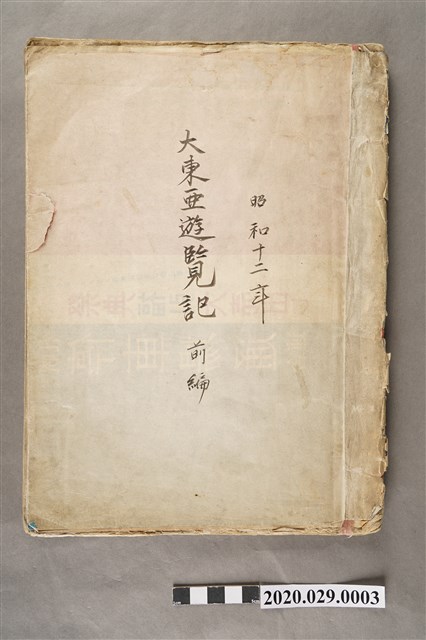 昭和十二年
大東亜遊覽記 前編
2020.029.0003